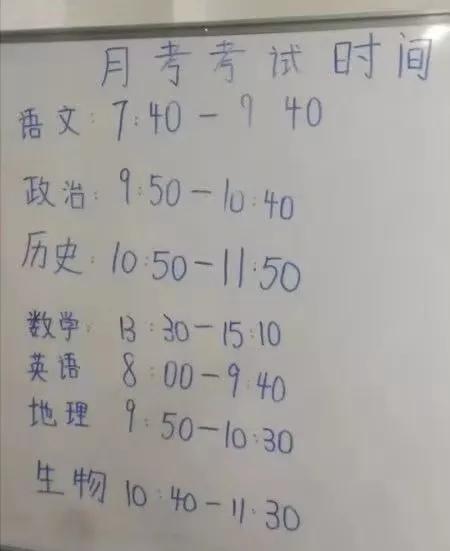 月考考试时间
语文: 7:40 - 9 40
政治: 9:50-10:40
历史: 10:50-11:50
数学: 13:30-15:10
英语 8:00-9:40
地理 9:50-10:30
生物 10:40-11:30